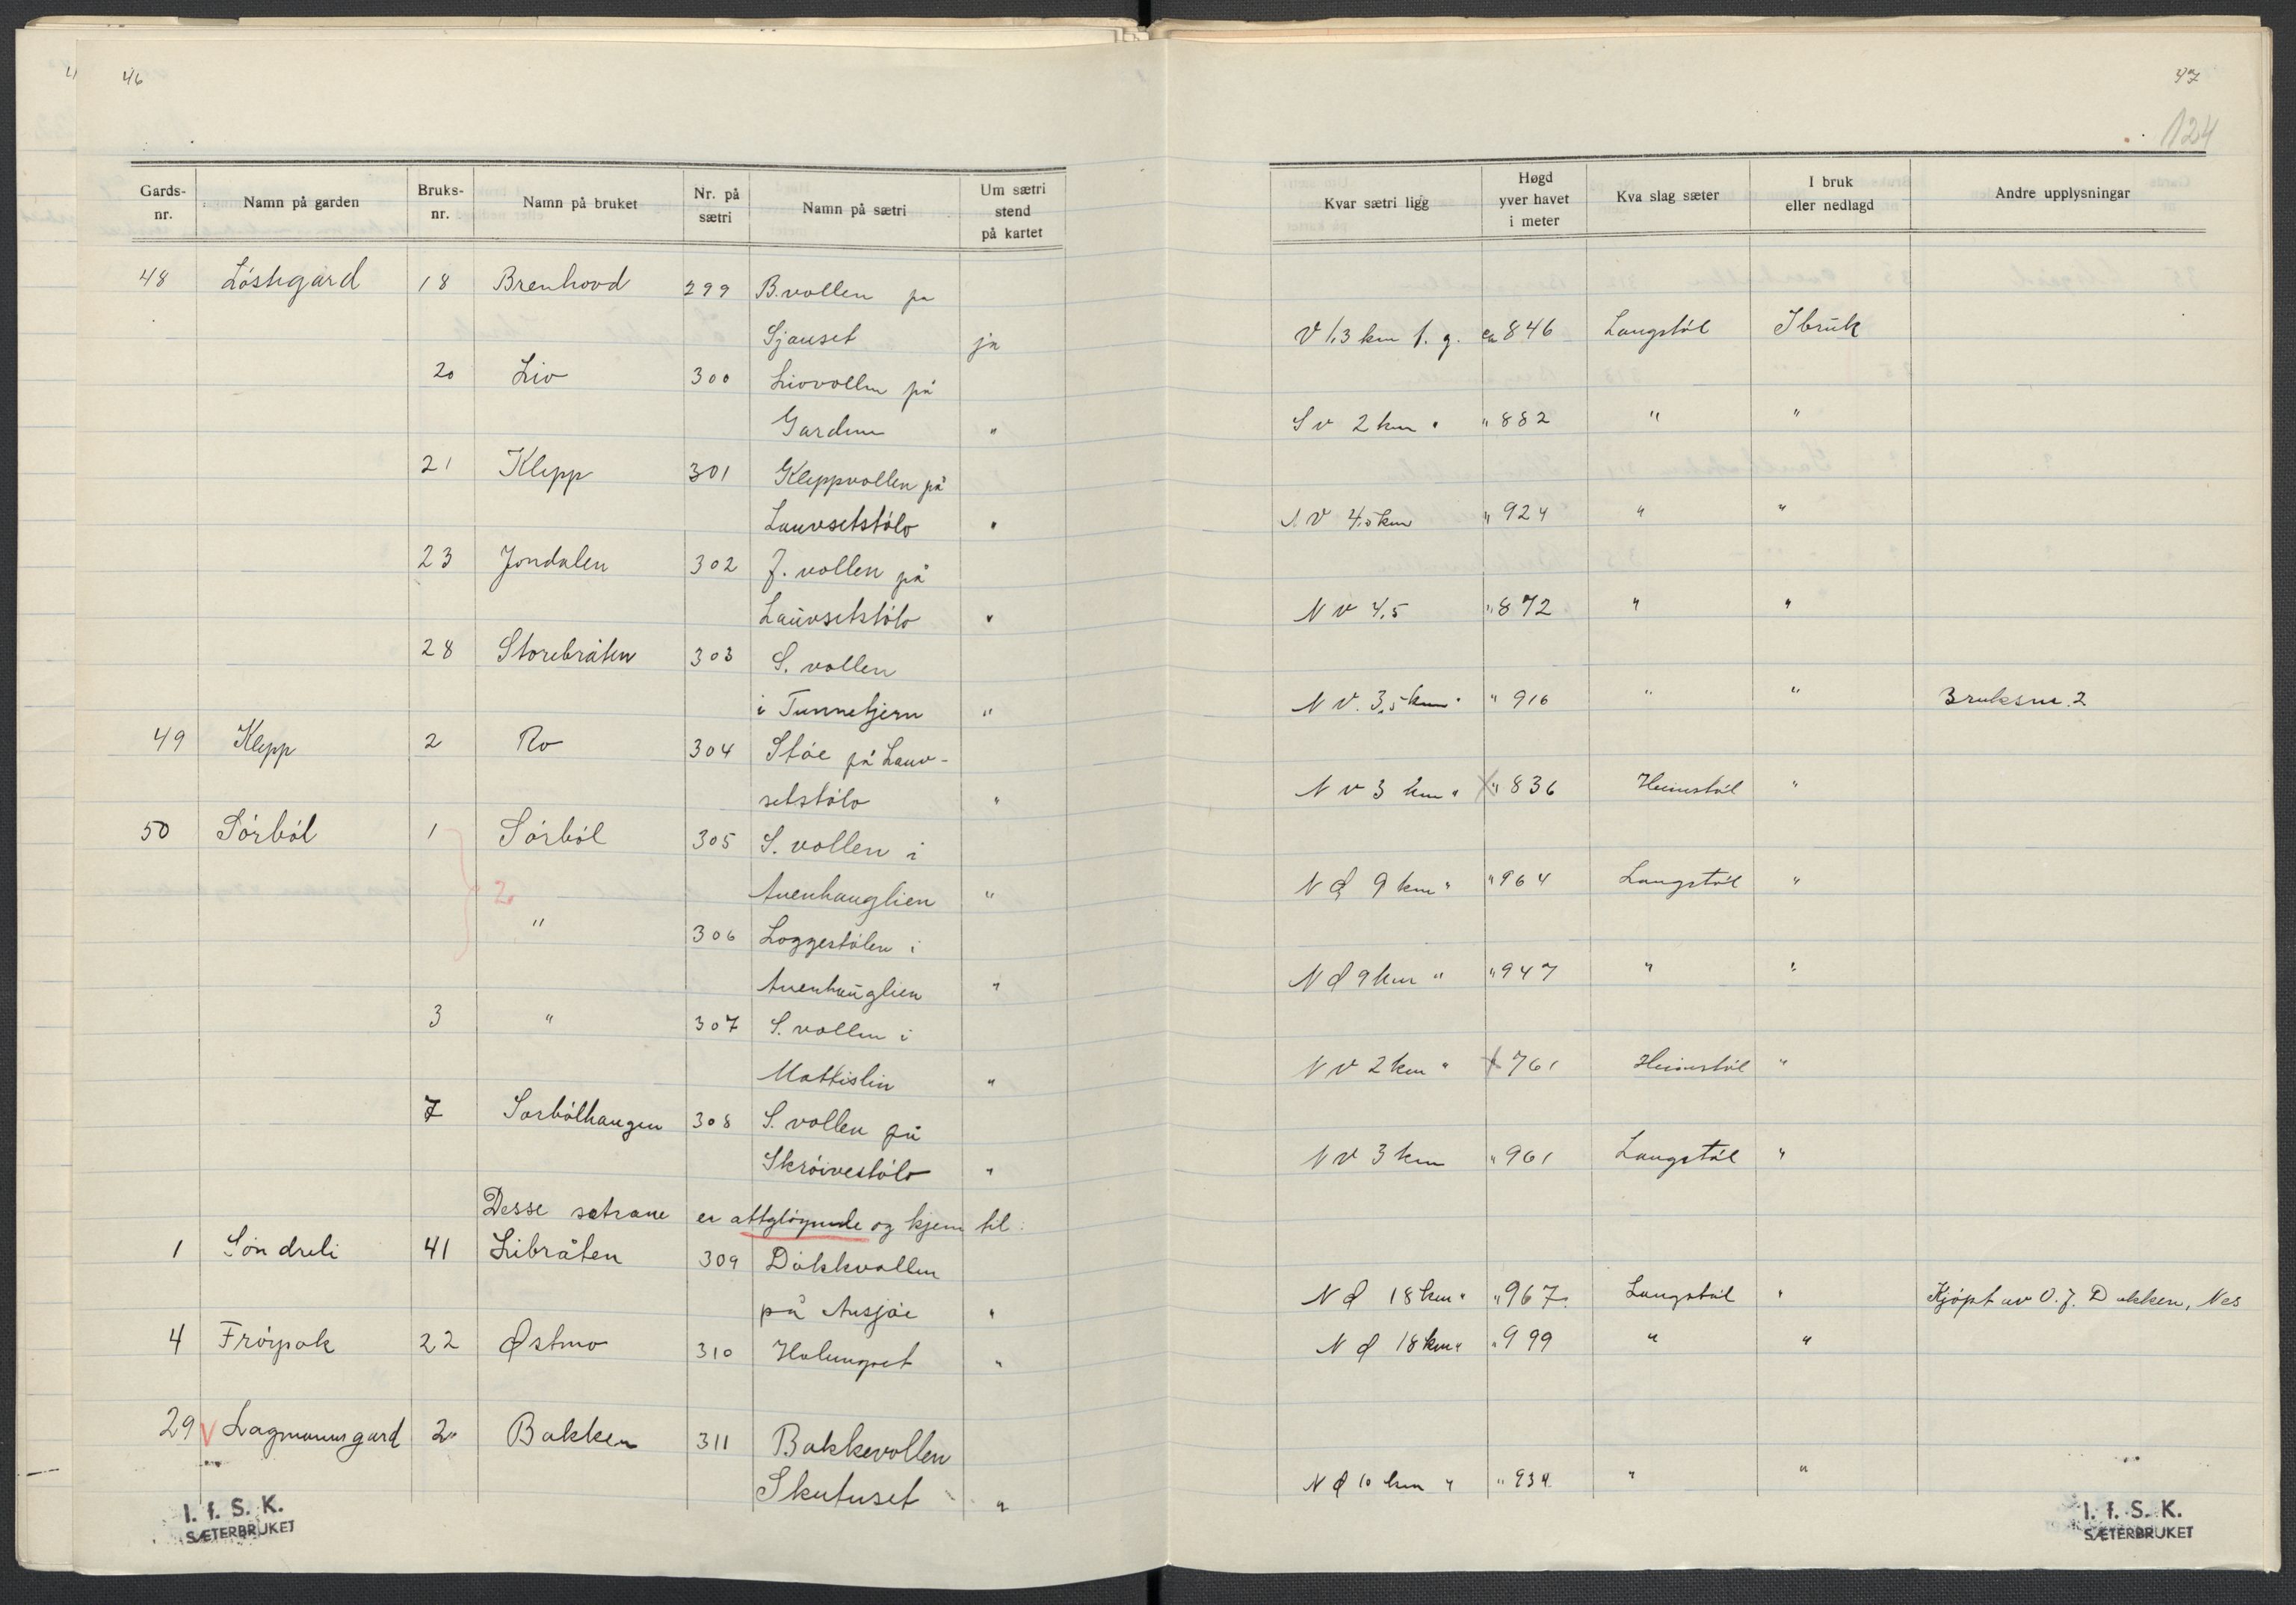 46
47
124
Gards-nr. Namn på garden Bruks-nr. Namn på bruket Nr. på sætri Namn på sætri Um sætri stend på kartet
Kvar sætri ligg Høgd yver havet i meter Kva slag sæter I bruk eller nedlagd Andre upplysningar
48 Løstegård 18 Brenhovd 299 B.vollen på
Sjauset ja V 1,3 km f. g. ca 846 Langstøl I bruk
20 Lio 300 Liovollen på
Garden " S v 2 km " " 882 " "
21 Klepp 301 Kleppvollen på
Lauvsetstølo " N V 4,0 km " 924 " "
23 Jondalen 302 J. vollen på
Lauvsetstølo " N v 4,5 " 872 " "
28 Storebråten 303 S. vollen
i Tunnetjern " N V. 3,5 km " " 916 " " Bruksnr. 2
49 Klepp 2 Ro 304 Støe på Lauv-
setstølo " N v 3 km " " 836 Heimstøl "
50 Sørbøl 1 Sørbøl 305 S. vollen i
2
Auenhauglien " N Ø 9 km " " 964 Langstøl "
" 306 Loggestølen i
Auenhauglien " N Ø 9 km " " 947 " "
3 " 307 S. vollen i
Mattislin " N V 2 km " " 761 Heimstøl "
7 Sørbølhaugen 308 S. vollen på
Skrøivestølo " N V 3 km " 961 Langstøl "
Desse sætrane er attgløymde og kjem til:
1 Søndreli 41 Libråten 309 Døkkvollen
på Ausjøe " N Ø 18 km " " 967 Langstøl " Kjøpt av O. J. Døkken, Nes
4 Frøysok 22 Østmo 310 " N Ø 18 km " " 999 " "
29 V Lagmannsgard 2 Bakken 311 Bakkevollen
Skutuset " N Ø 10 km " " 934 " "
I. f. S. K.
SÆTERBRUKET
I. f. S. K.
SÆTERBRUKET